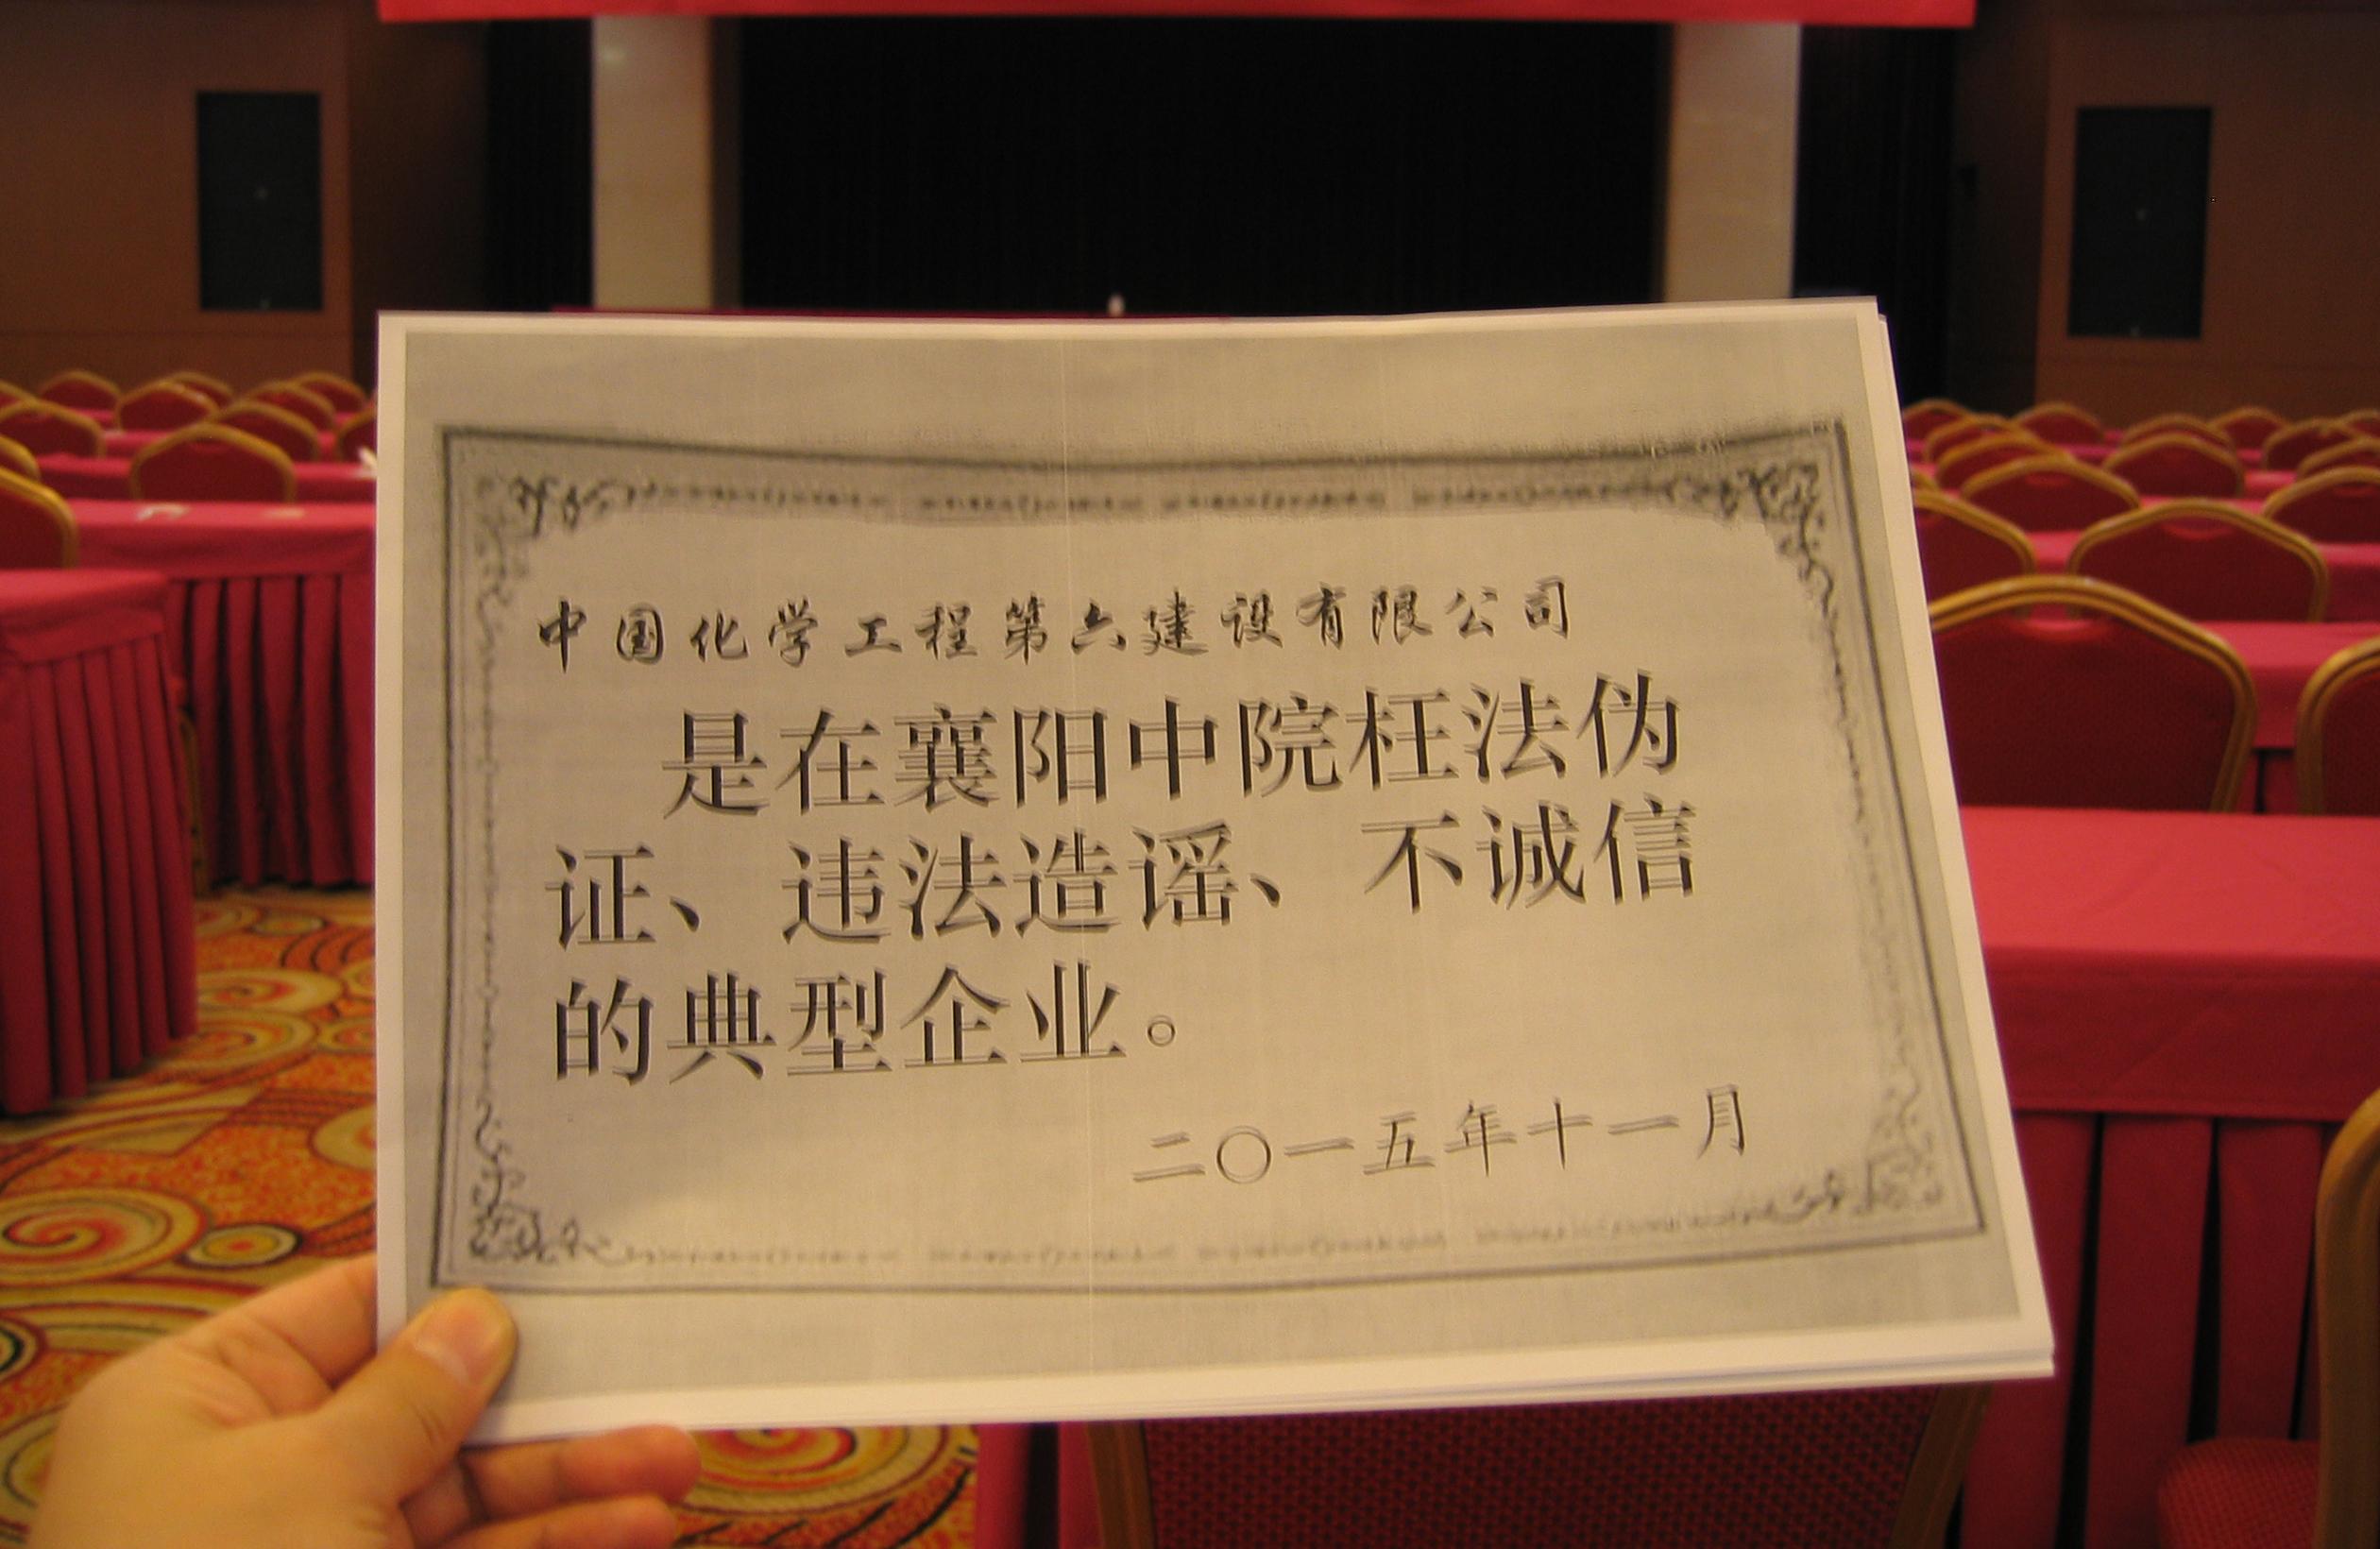 中国化学工程第六建设有限公司
是在襄阳中院枉法伪
证、违法造谣、不诚信
的典型企业。
二〇一五年十一月